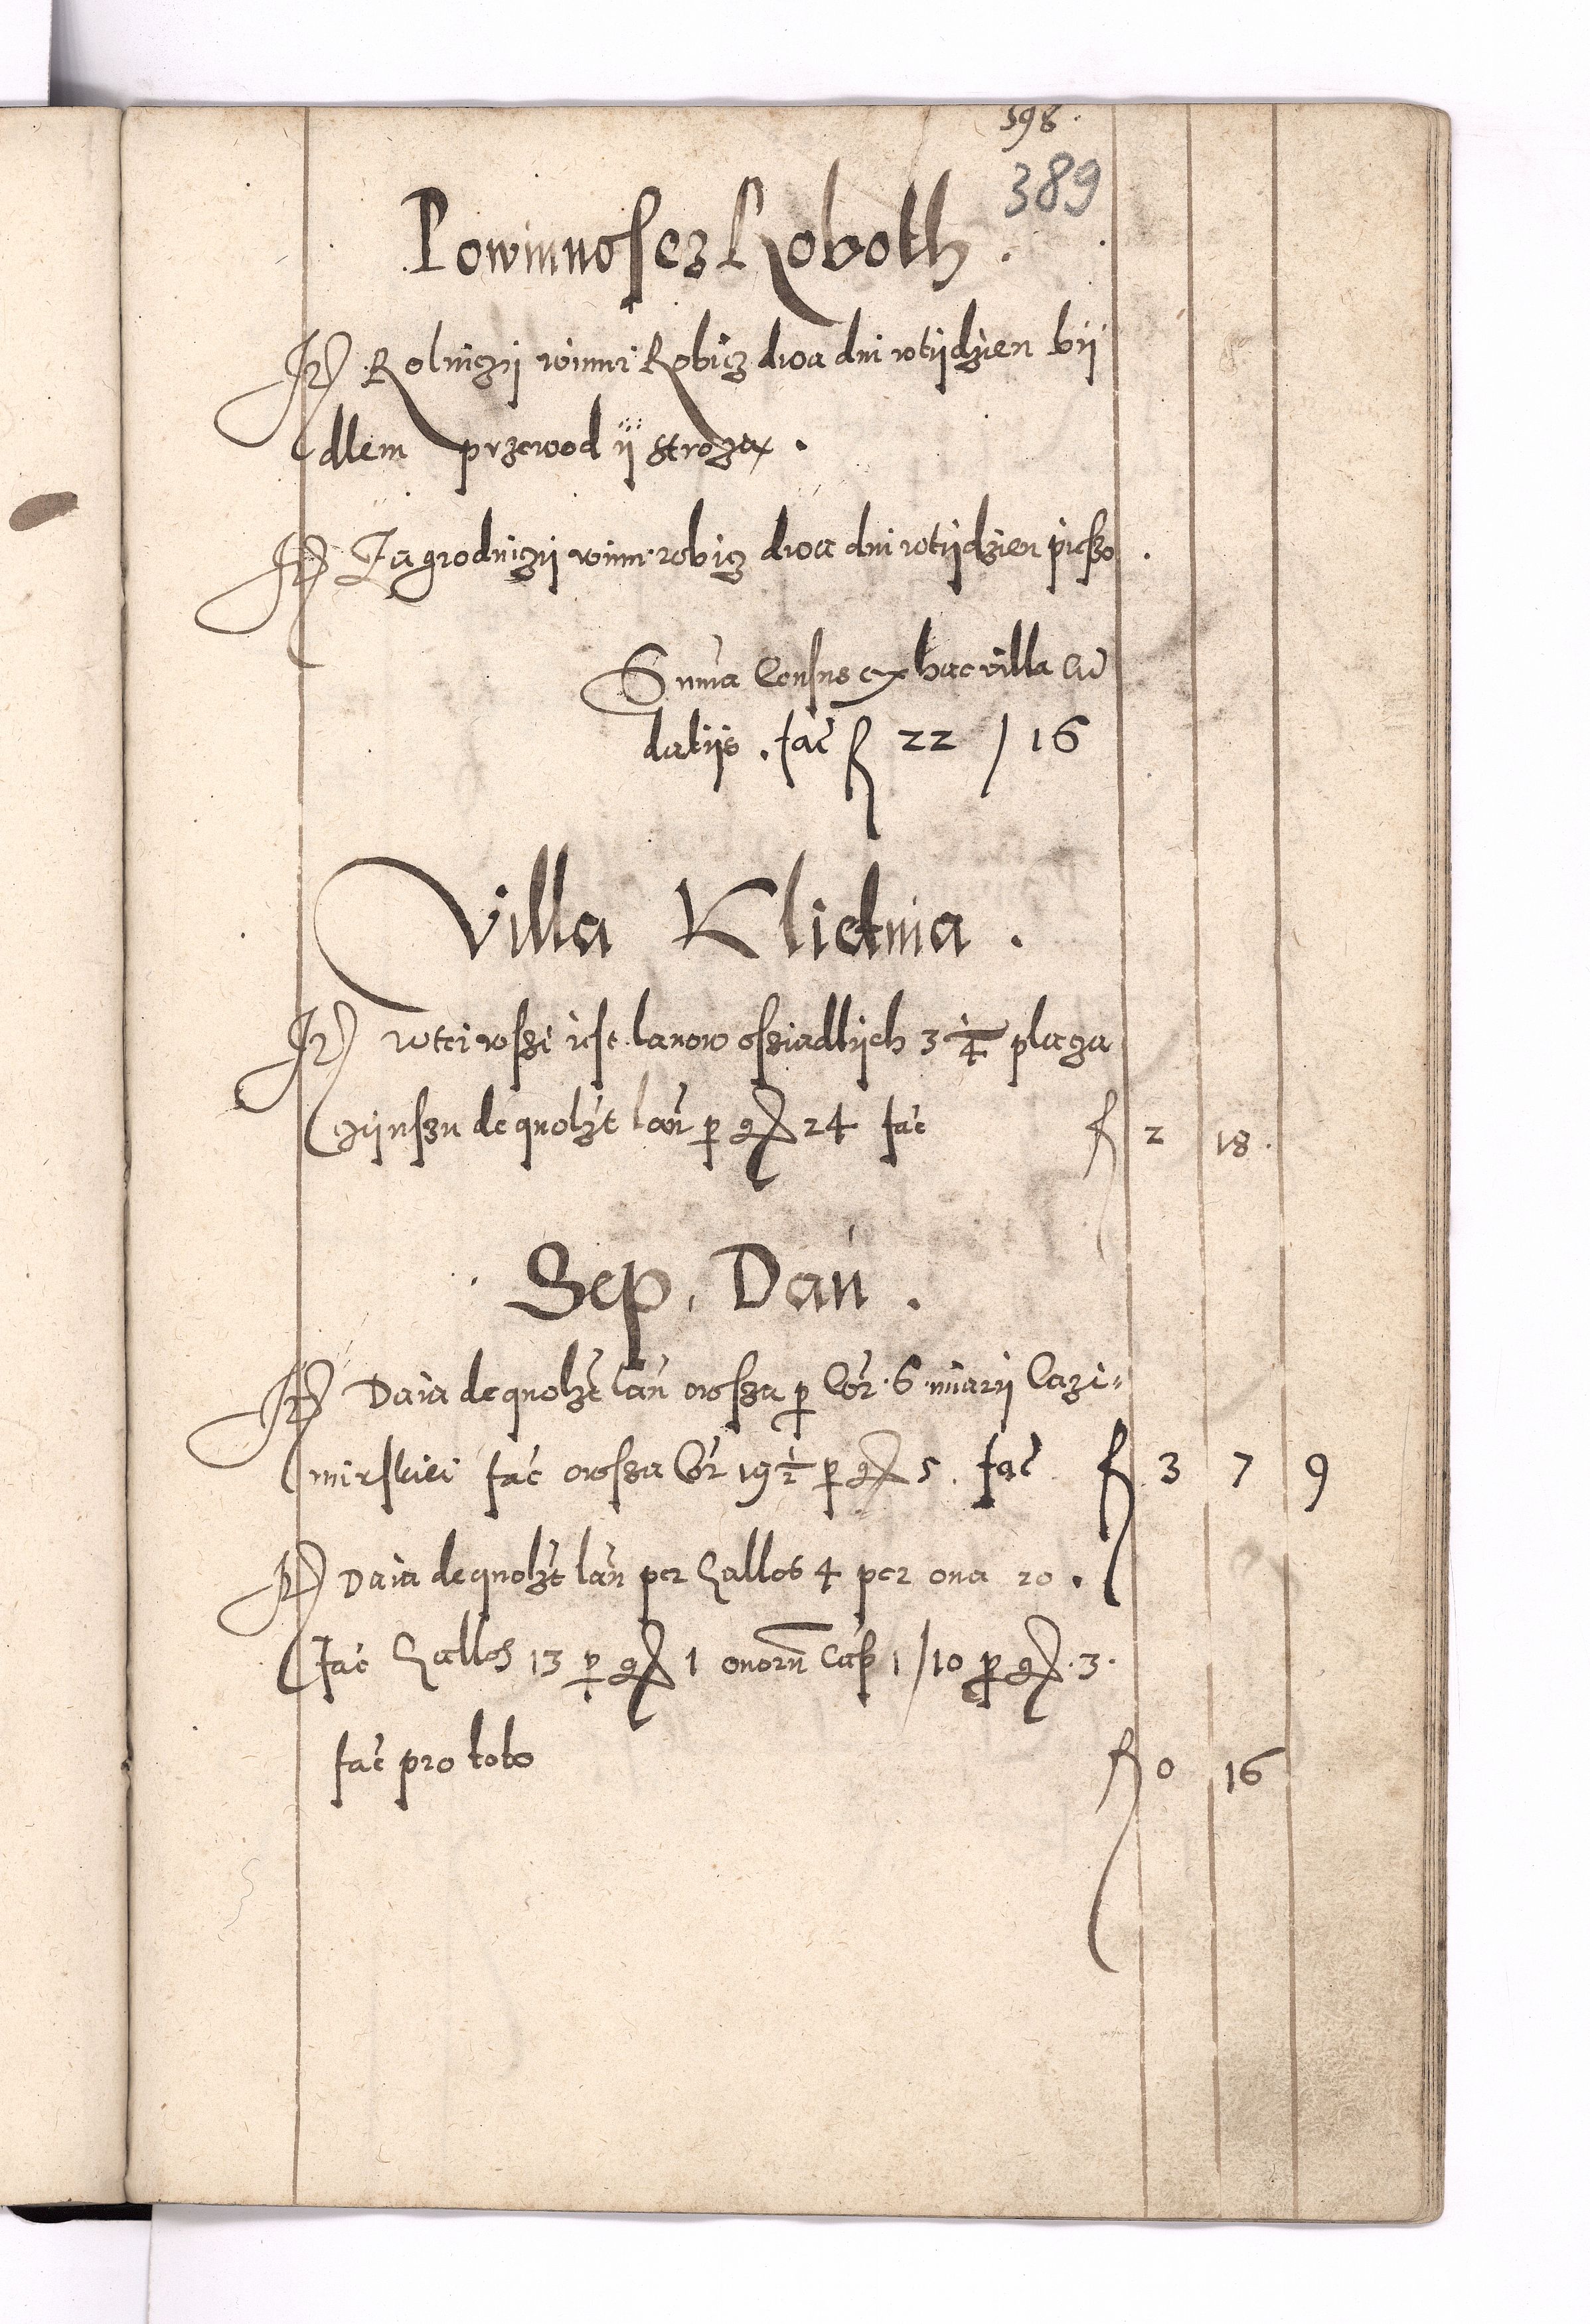 598.
389
Powinnoscz Roboth.
It Rolniczÿ winni Robicz dwa dni wtÿdzien bÿ
dlem przewod ÿ stroża.
It Zagrodniczÿ winni robicz dwa dni wtÿdzien pieszo.
Suma Census ex hac villa cu
datÿs. fac f 22 / 16
Villa Klietnia.
It wtei wszi iest lanow ossiadlÿch 3 1/4 placza
czÿnszu de quolzt lan p gr 24 fac f 2 18.
Sep, Dan.
It Daia de quolzt lan owsza p Cor. 6 miarÿ Cazi=
mirskiei fac owssa Cor 19 1/2 p gr 5. fac f 3 7 9
It Daia de quolzt lan per Gallos 4 per oua 20.
fac Gallos 13 p gr 1 ouoru Cap 1/10 p gr. 3.
fac pro toto f 0 16